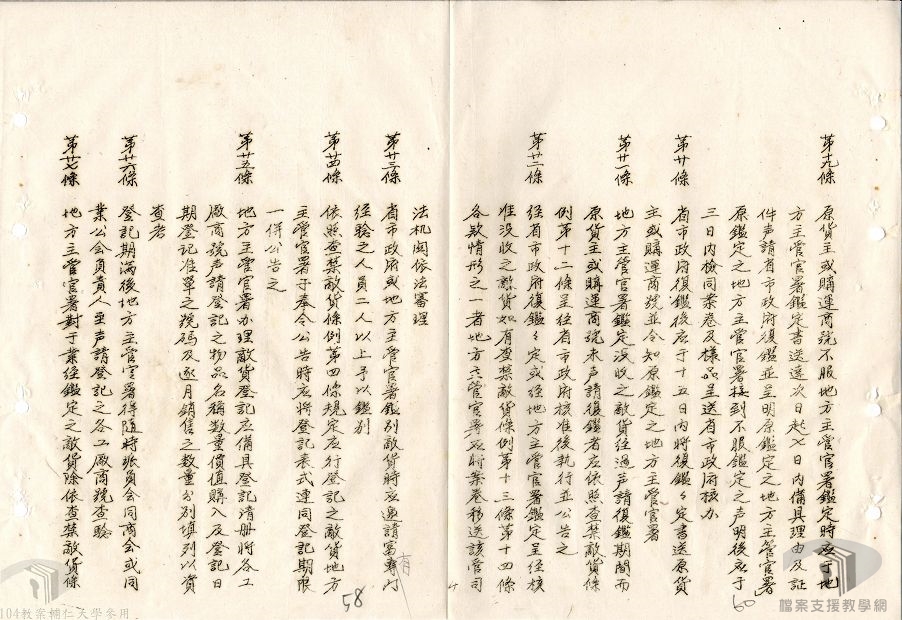 第十九條　原貨主或購運商號不服地方主管官署鑑定時应于地
方主管官署鑑定書送達次日起七日內備具理由及証
件声請省市政府復鑑並呈明原鑑定之地方主管官署
原鑑定之地方主管官署接到不服鑑定之声明後应于
三日內檢同案卷及樣品呈送省市政府核办
第廿條　省市政府復鑑後应于十五日內將復鑑々定書送原貨
主或購運商號並令知原鑑定之地方主管官署
第廿一條　地方主管官署鑑定没收之敵貨経過声請復鑑期間而
原貨主或購運商號未声請復鑑者应依照查禁敵貨條
例第十二條呈経省市政府核准後執行並公告之
第廿二條　経省市政府復鑑々定或経地方主管官署鑑定呈経核
准没收之敵貨如有查禁敵貨條例第十三條第十四條
各款情形之一者地方主管官署应將案卷移送該管司
法机関依法審理
第廿三條　省市政府或地方主管官署鑑别敵貨時应邀請富有專門
経驗之人員二人以上予以鑑别
第廿四條　依照查禁敵貨條例第四條規定应行登記之敵貨地方
主管官署于奉令公告時应將登記表式連同登記期限
一併公告之
第廿五條　地方主管官署办理敵貨登記应備具登記清册將各工
廠商號声請登記之物品名稱数量價值購入及登記日
期登記准單之號码及逐月銷售之数量分别填列以資
查考
第廿六條　登記期滿後地方主管官署得隨時派員会同商会或同
業公会負責人至声請登記之各工廠商號查驗
第廿七條　地方主管官署对于業経鑑定之敵貨除依查禁敵貨條
60
58
檔案支援教學網
104教案輔仁大學参用